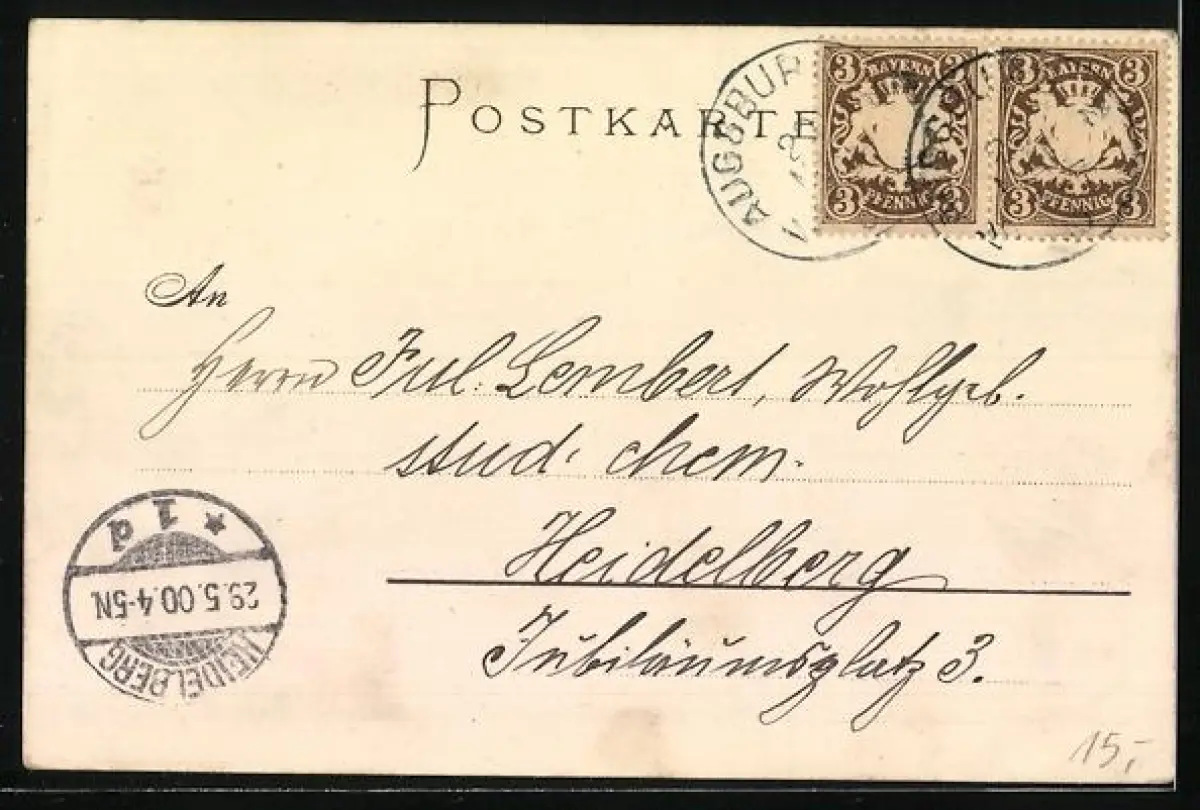 POSTKARTE
AUGSBURG
3 BAYERN 3
3 PFENNIG 3
3 BAYERN 3
3 PFENNIG 3
An
Herrn Jul. Lembert, Wohlgeb.
stud. chem.
Heidelberg
Jubiläumsplatz 3.
HEIDELBERG
29.5.00.4-5N.
* 1 d
15,-